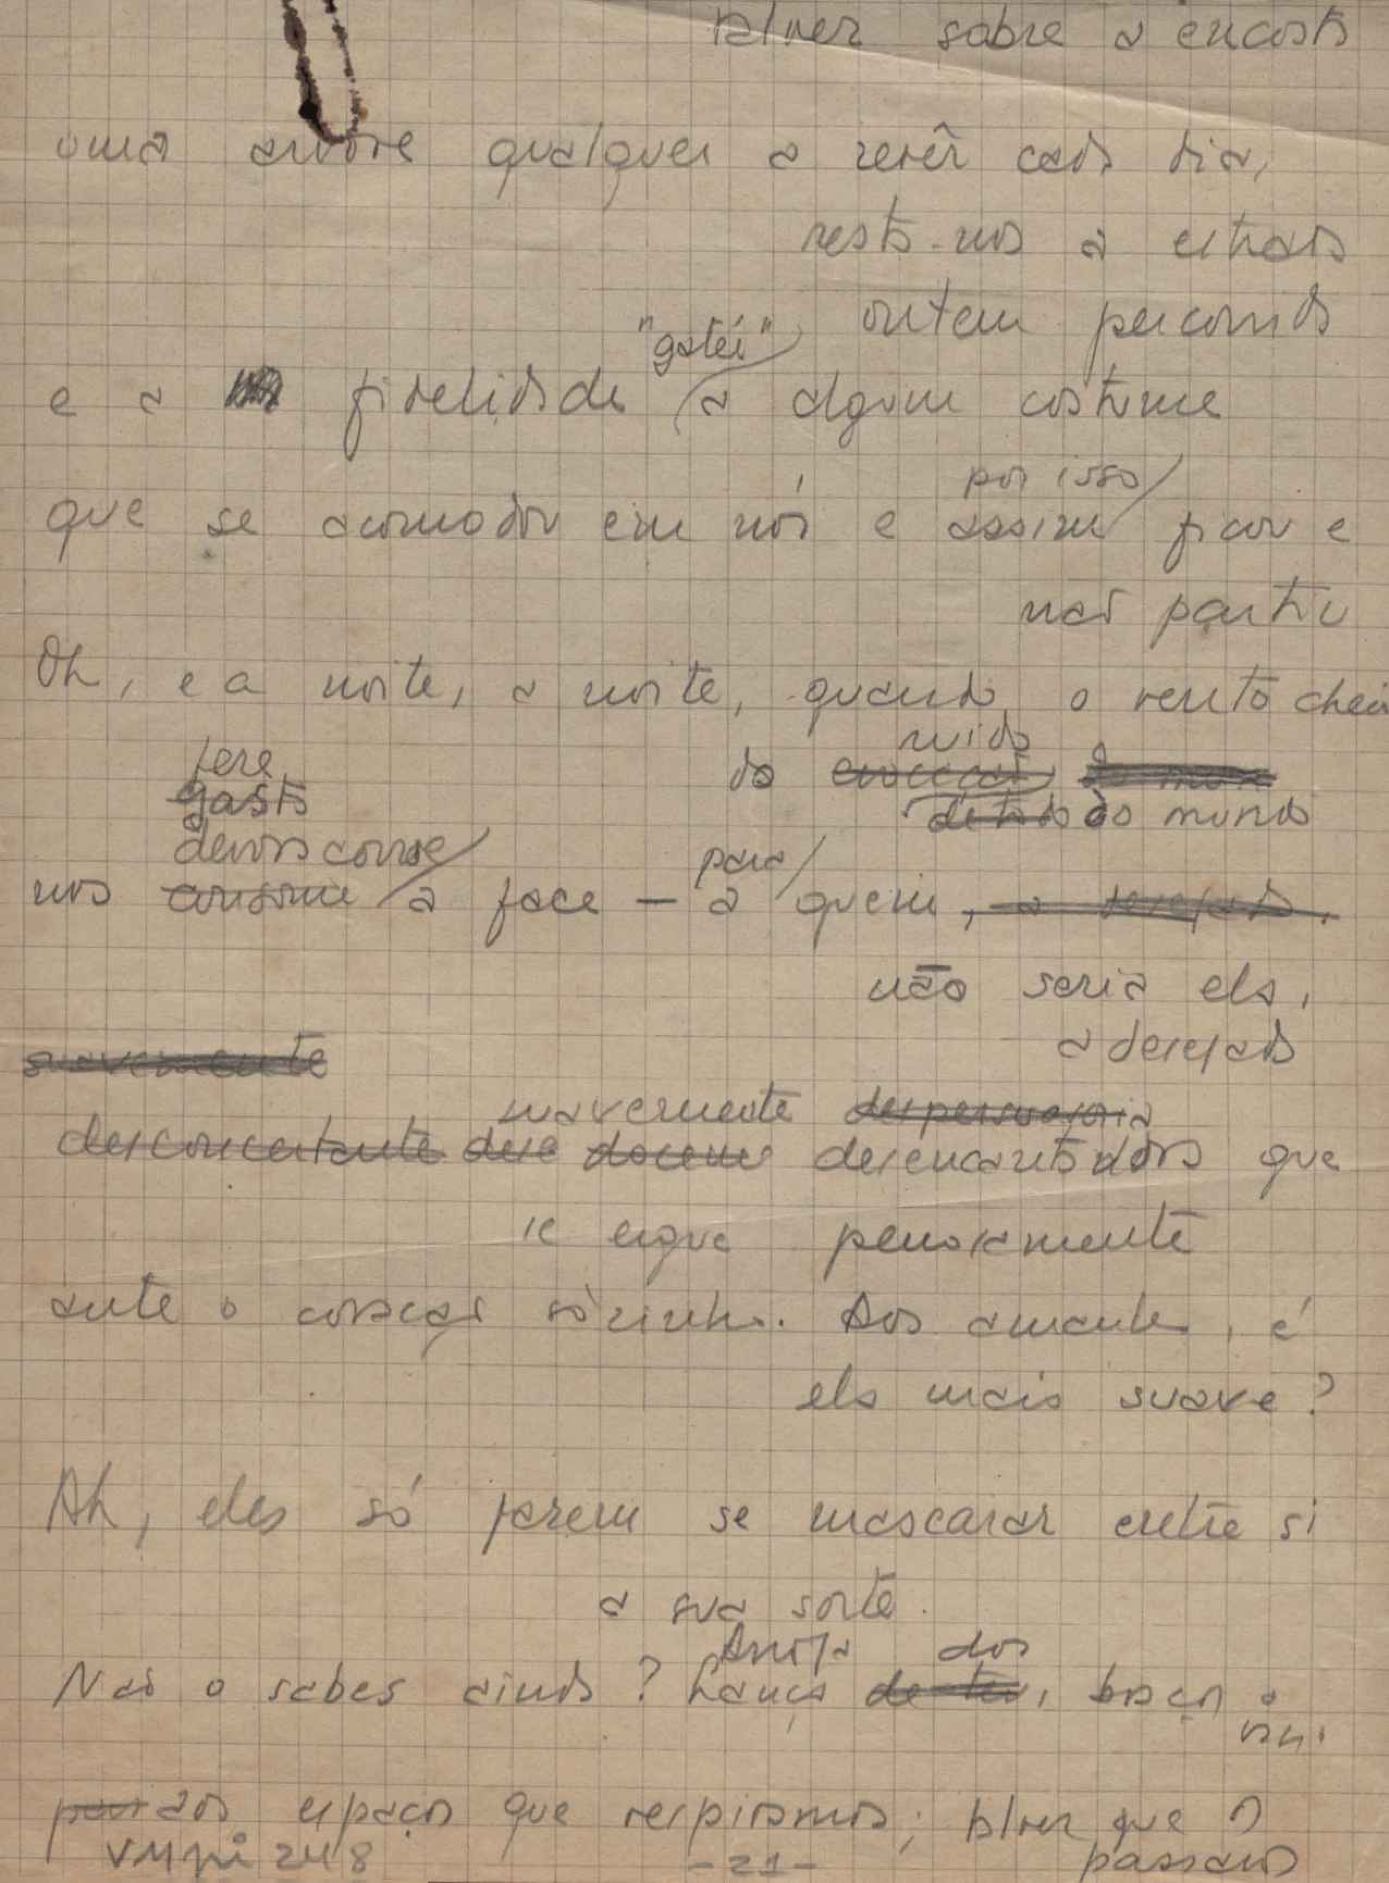 talvez sobre a encosta
uma árvore qualquer a revêr cada dia,
resta-nos a estrada
ontem percorrida
"gatée"
e a fidelidade a algum costume
por isso
que se acomodou em nós e assim ficou e
não partiu
Oh, e a noite, a noite, quando o vento cheio
ruido
fere do
gasta do mundo
devora corroe
para
nos consome a face — a quem, a desejada,
não seria ela,
a desejada
suavemente
suavemente
desconcertante docemente desencantadora que
se ergue penosamente
ante o coração sòzinho. Aos amantes, é
ela mais suave?
Ah, eles só fazem se mascarar entre si
a sua sorte.
Arroja dos
Não o sabes ainda? Lança de teus, braços o
vasio
para aos espaços que respiramos; talvez que os
passaros
VMPi 248 -21-